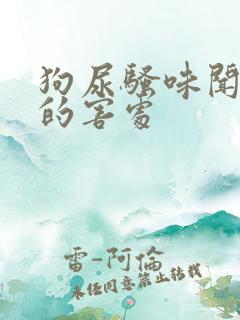 狗尿騷味聞
的害處
雷-阿倫
未經同意禁止轉載